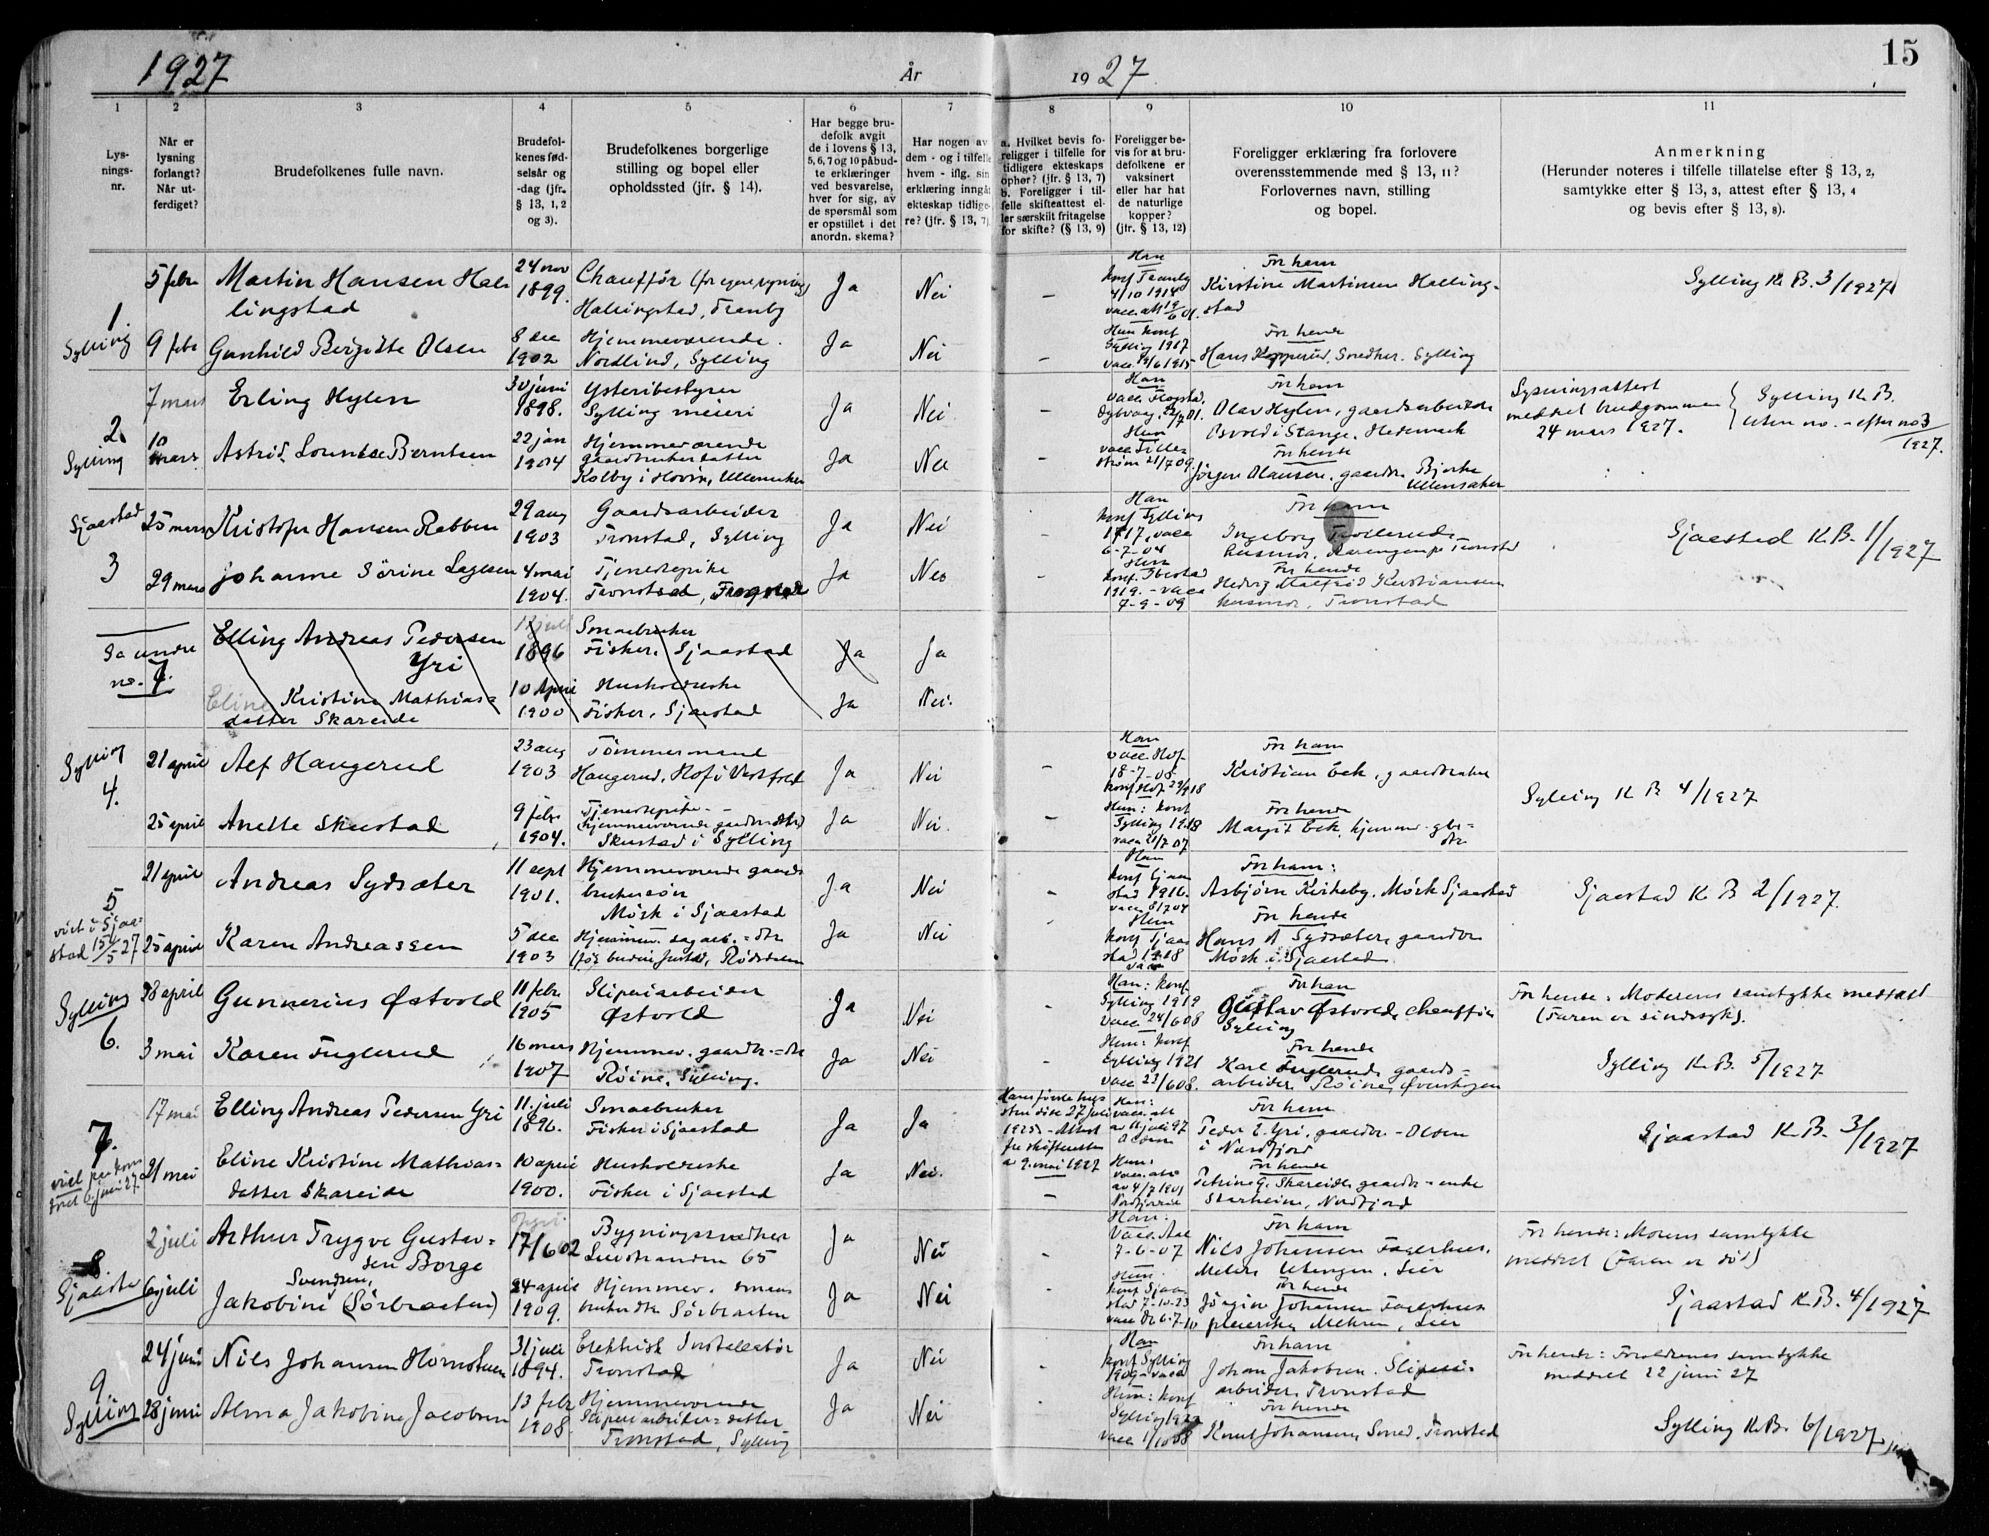 1927
År
1927.
15
1
2
3
4
5
6
7
8
9
10
11
Lys-
nings-
nr.
Når er
lysning
forlangt?
Når ut-
ferdiget?
Brudefolkenes fulle navn.
Brudefol-
kenes fød-
selsår og
-dag (jfr.
§ 13, 1, 2
og 3).
Brudefolkenes borgerlige
stilling og bopel eller
opholdssted (jfr. § 14).
Har begge bru-
defolk avgit
de i lovens § 13,
5, 6, 7 og 10 påbud-
te erklæringer
ved besvarelse,
hver for sig, av
de spørsmål som
er opstillet i det
anordn. skema?
Har nogen av
dem - og i tilfelle
hvem - iflg. sin
erklæring inngåt
ekteskap tidlige-
re? (jfr. § 13, 7)
a. Hvilket bevis fo-
religger i tilfelle for
tidligere ekteskaps
ophør? (jfr. § 13, 7)
b. Foreligger i til-
felle skifteattest el-
ler særskilt fritagelse
for skifte? (§ 13, 9)
Foreligger be-
vis for at bru-
defolkene er
vaksinert
eller har hat
de naturlige
kopper?
(jfr. § 13, 12)
Foreligger erklæring fra forlovere
overensstemmende med § 13, 11?
Forlovernes navn, stilling
og bopel.
Anmerkning
(Herunder noteres i tilfelle tillatelse efter § 13, 2,
samtykke efter § 13, 3, attest efter § 13, 4
og bevis efter § 13, 8).
1.
Sylling
5 febr
Martin Hansen Hal
lingstad
24 nov
1899.
Chauffør (for egen regning)
Hallingstad, Tranby
Ja
Nei
-
Han
konf Tranby
4/10 1914
For ham
Kirstine Martinsen Halling-
stad
Sylling K. B. 3/1927
9 febr
Gunhild Bergitte Olsen
8 dec
1902
Hjemmeværende.
Nordlind, Sylling
Ja
Nei
-
Hun konf
Sylling 1917
For hende
Hans Kopperud, Smedher. Sylling
2.
Sylling
7 mars
Erling Hylen
30 juni
1898.
Ysteribestyrer
Sylling meieri
Ja
Nei.
-
Han
For ham
Olav Hylen, gaardsarbeider
i Stange. Hedemark
Lysningsattest
meddelt brudgommen
24 mars 1927.
Sylling K. B.
uten no. - efter no 3
1927.
10
mars
Astrid Berntsen
22 jan
1904
Hjemmeværende
gaardbrukerdatter
Kolby i Hovin, Ullensaker
Ja
Nei
Hun
For hende
Jørgen Olausen, gaardbr. Bjerke
Ullensaker
Sjaastad
3
25 mars
Kristofer Hansen Rabben
29 aug
1903
Gaardsarbeider
Tronstad, Sylling
Ja
Nei
-
Han
konf Sylling
1917, vacc
6-7-04
For ham
Ingeborg
Tronstad
Sjaastad K.B. 1/1927
29 mars
Johanne Sørine
4 mai
1904.
Tjenestepike
Tronstad,
Ja
Nei
-
Hun
1919. - vacc
7-9-09
For hende
Hedvig Kristiansen
husmor, Tronstad
Se under
no. 7.
Elling Andreas Pedersen
Yri
1896
Smaabruker
Fisker, Sjaastad
Ja
Ja
Eline Kristine Mathias=
datter Skareide
10 April
1900
Husholderske
Fisker, Sjaastad
Ja
Nei.
Sylling
4.
21 april
Alf Haugerud
23 aug
1903
Tømmermand
Haugerud, Hof i Vestfold
Ja
Nei
-
Han
vacc. Hof
18-7-08
For ham
Kristian Eek, gaardbruker
Sylling K B 4/1927
25 april
Anette Skustad
9 febr
1904.
Tjenestepike. -
Skustad i Sylling
Ja
Nei.
-
Hun: konf
Sylling 1918
For hende
Margit Eek, hjemmev.
5
viet i Sjaa-
stad 15/5 27
21 april
Andreas Sydsæter
11 sept
1901.
Hjemmeværende gaard-
brukersøn
Mørk i Sjaastad
Ja
Nei
-
Han
konf Sjaa
stad 1916.
For ham:
Asbjørn Kirkeby, Mørk Sjaastad
Sjaastad K. B 2/1927.
25 april
Karen Andreassen
5 dec
1903
Ja
Nei
Hun
konf Sjaa
stad 1918
For hende
Hans A Sydsæter, gaardbr
Mørk i Sjaastad.
Sylling
6.
28 april
Gunnerius Østvold
11 febr
1905
Sliperiarbeider
Østvold
Ja
Nei
-
Han: konf
Sylling 1919
For ham
Gustav Østvold, Chauffør
Sylling
For hende: Moderens samtykke meddelt
(Faren er sindssyk).
3 mai
Karen Fuglerud
16 mars
1907
Hjemmev. gaardbr.=dtr
Røine, Sylling.
Ja
Nei
-
Hun: konf
Sylling 1921
For hende
Karl Fuglerud, gaards=
arbeider, Røine,
Sylling K. B. 5/1927
7.
17 mai
Elling Andreas Pedersen Yri
11. juli
1896.
Smaabruker
Fisker i Sjaastad
Ja
Ja
Hans første hus
tru døde 27 juli
1925. - Attest
fra skifteretten
a 9. mai 1927
Han:
vacc. att
For ham
Peder E. Yri, gaardbr - Olden
i Nordfjord
Sjaastad K. B. 3/1927
21 mai
Eline Kristine Mathias=
datter Skareide
10 april
1900.
Husholderske
Fisker i Sjaastad
Ja
Nei.
-
Hun:
vacc. att
av 4/7 1901
For hende
Petrine G. Skareide, gaardbr - enke
Nordfjord
8
Sjaastad
2 juli
Arthur Trygve Gustav=
sen Borge
17/6 02
Bygningssnedker
65
Ja
Nei
-
Han:
7-6-07
For ham
Nils Johansen Fagerhus.
Lier
For hende: Morens samtykke
meddelt (Faren er død)
6 juli
Svendsen,
Jakobine (Sørbraaten)
24 april
1909.
Hjemmev. smaa
bruker dtr. Sørbraaten
Ja
Nei
-
Hun:
konf Sjaa
stad 7-10-23
For hende
Jørgine Johansen Fagerhus
Lier
Sjaastad K. B. 4/1927
9
Sylling
24 juni
Nils Johansen Hornstuen
31 juli
1894.
Elektrisk Installatør
Tronstad
Ja
Nei
-
Han
konf Sylling
1909 - vacc
For ham
Johan Jakobsen. Sliperi-
arbeider, Tronstad
For hende: Forældrenes samtykke
meddelt 22 juni 27
28 juni
Alma Jakobine Jacobsen
13 febr
1908.
Hjemmeværende
Sliperiarbeider=datter
Tronstad, Sylling
Ja
Nei
-
Hun: konf
Sylling 1922
For hende
Knut Johansen, Smed, Tronstad
Sylling K. B. 6/1927